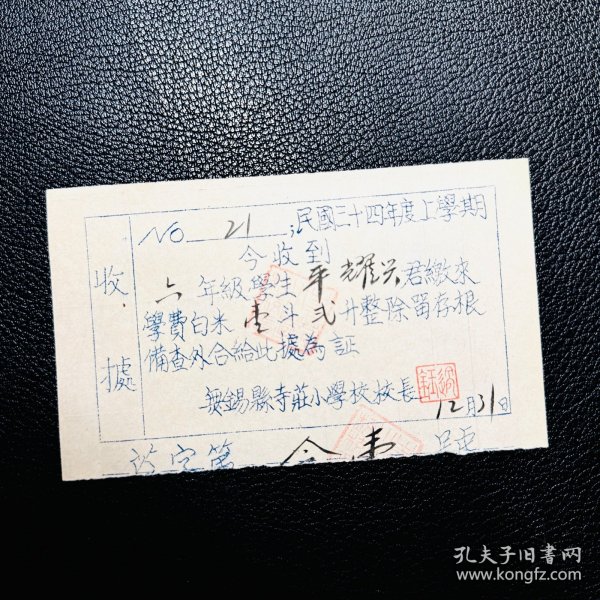 收據
NO 21 ; 民國三十四年度上學期
今收到
六年級學生平耀興君繳來
學費白米壹斗弍升整除留存根
備查外合給此據為証
無錫縣寺莊小學校校長
12月31日
字第 號
孔夫子旧书网
www.kongfz.com